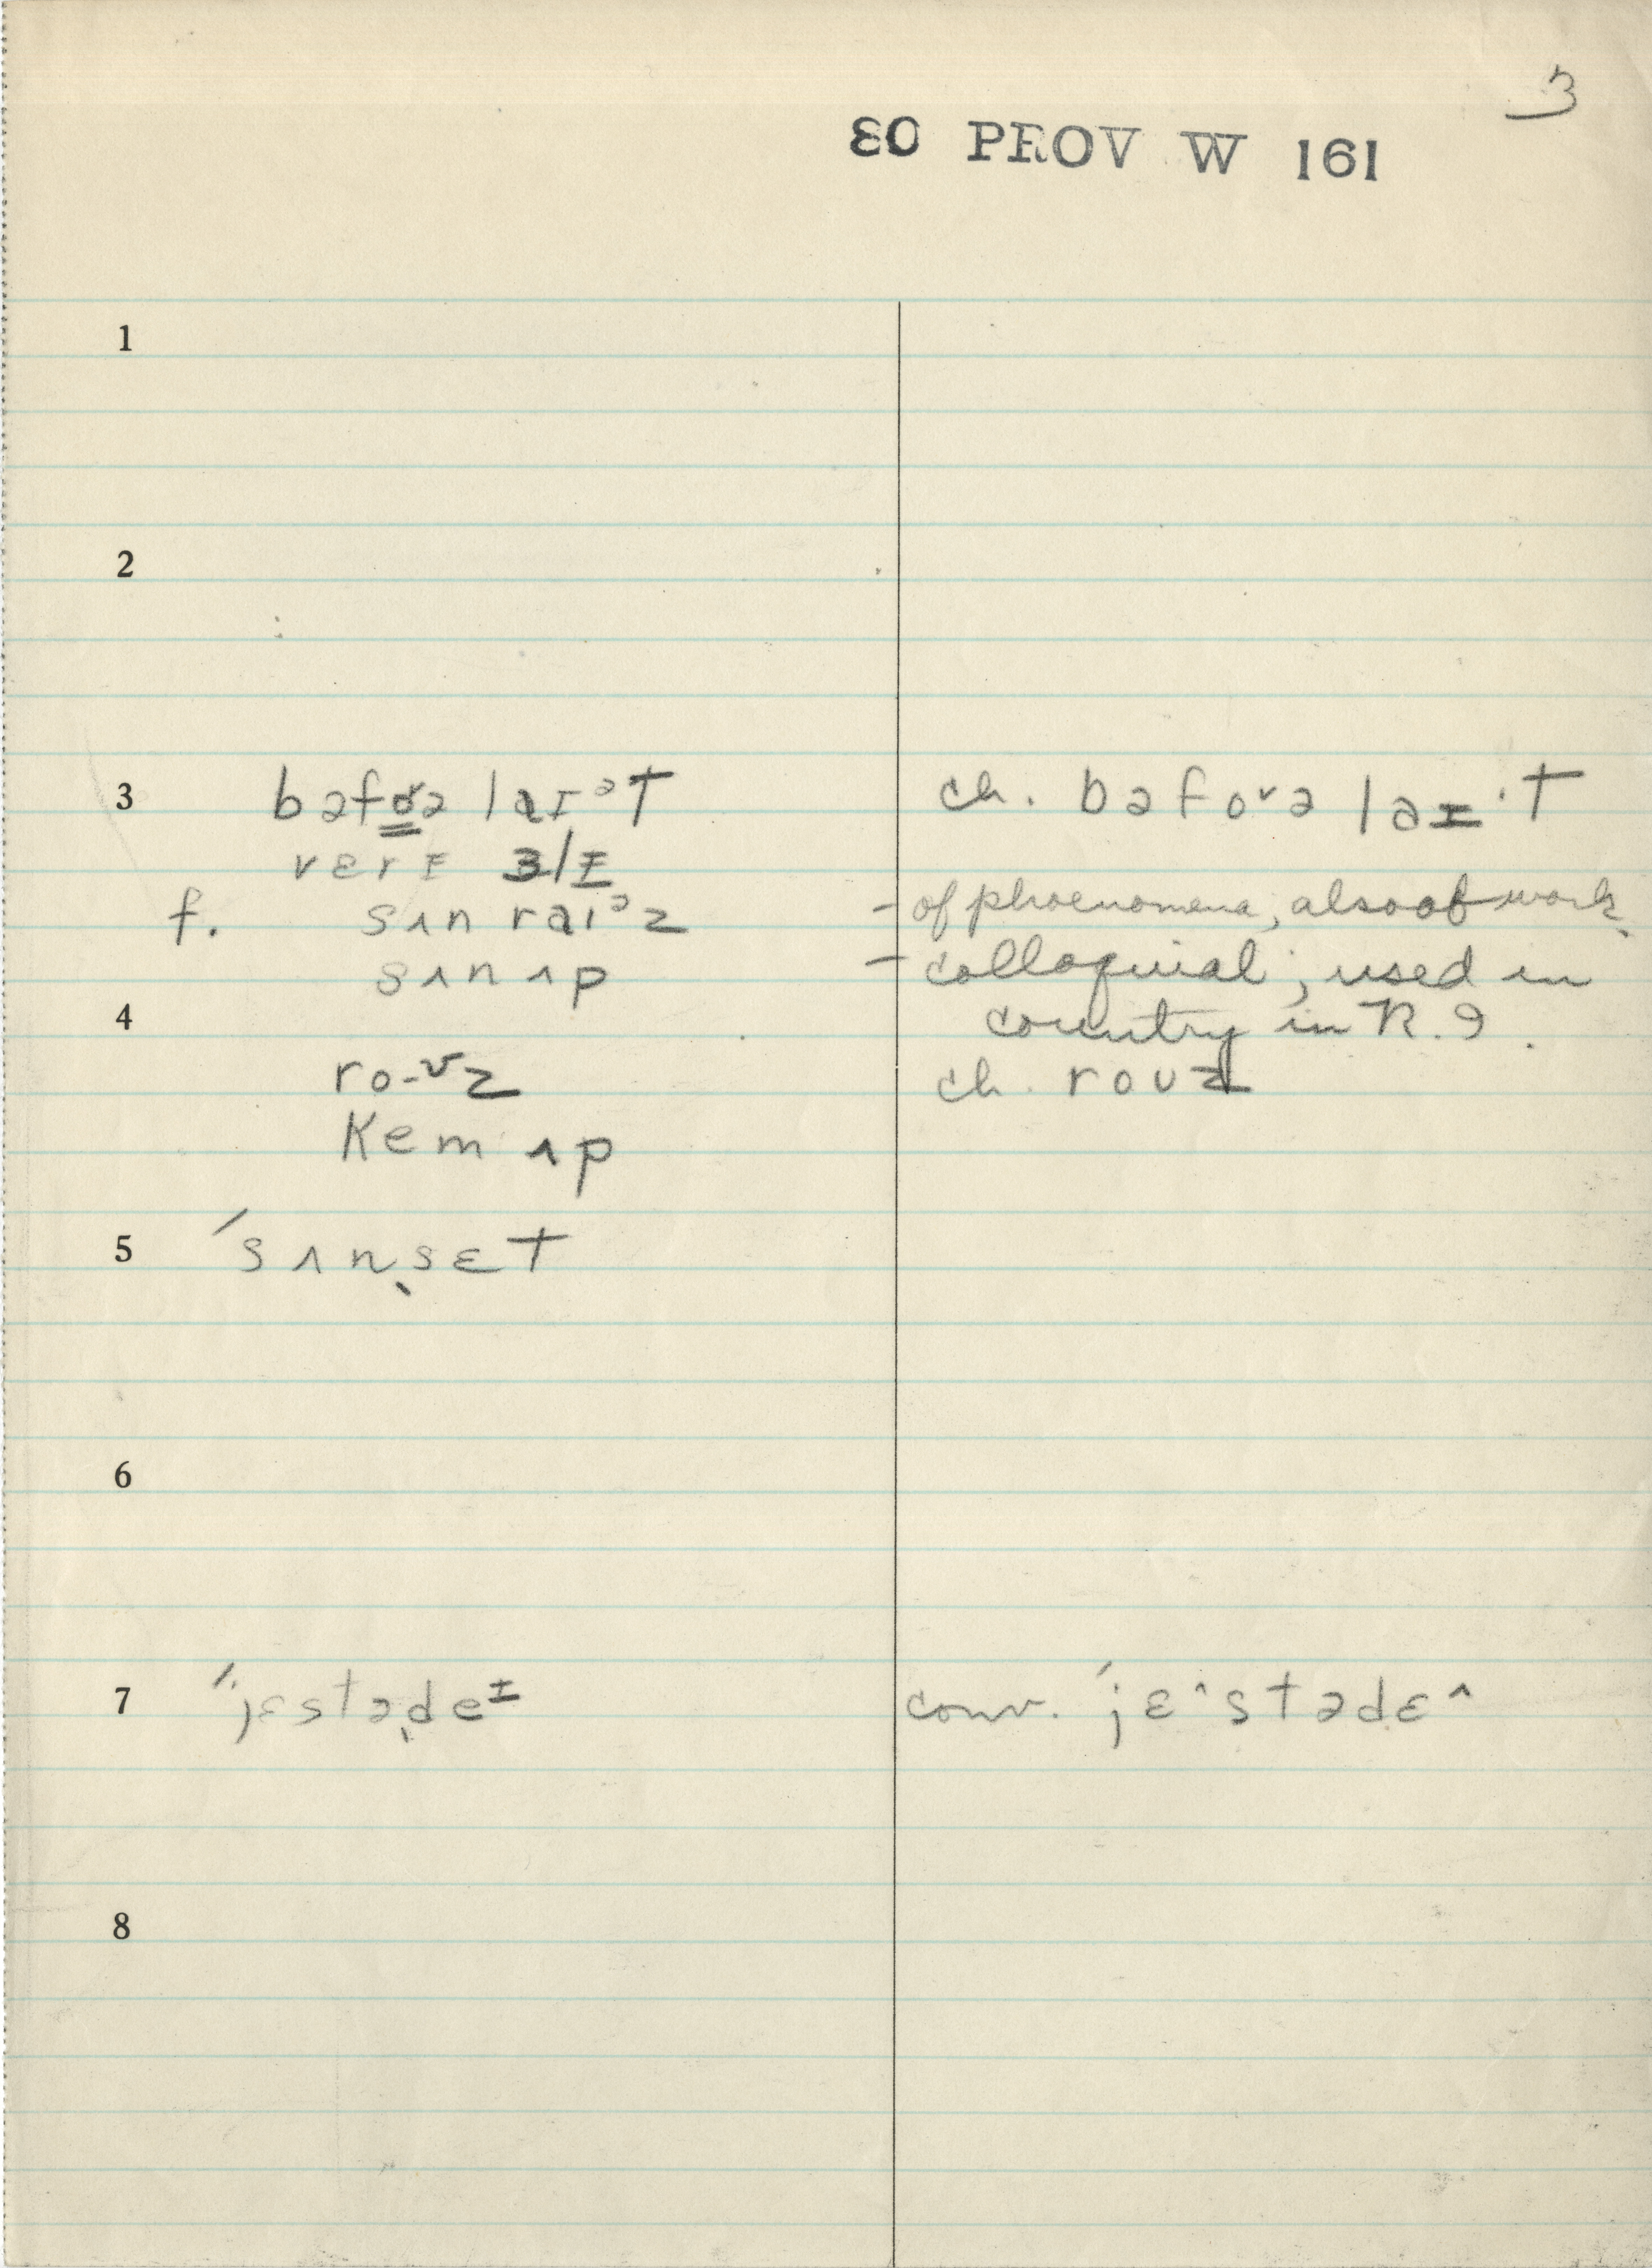 3
80 PROV W 161
1
2
3 bəfoə laɪᵊt ch. bəfoᵛə laɪ·t
vɛrɪ ɜlɪ
f. sʌn raiᵊz - of phoenomena, also of work.
sʌn ʌp - colloquial; used in
4 country in R.I.
ro-ᶹz ch. roʊz
Kem ʌp
5 ˈsʌnˌsɛt
6
7 ˈjɛstəˌdeᶦ conv. ˈjɛ^stədɛ^
8